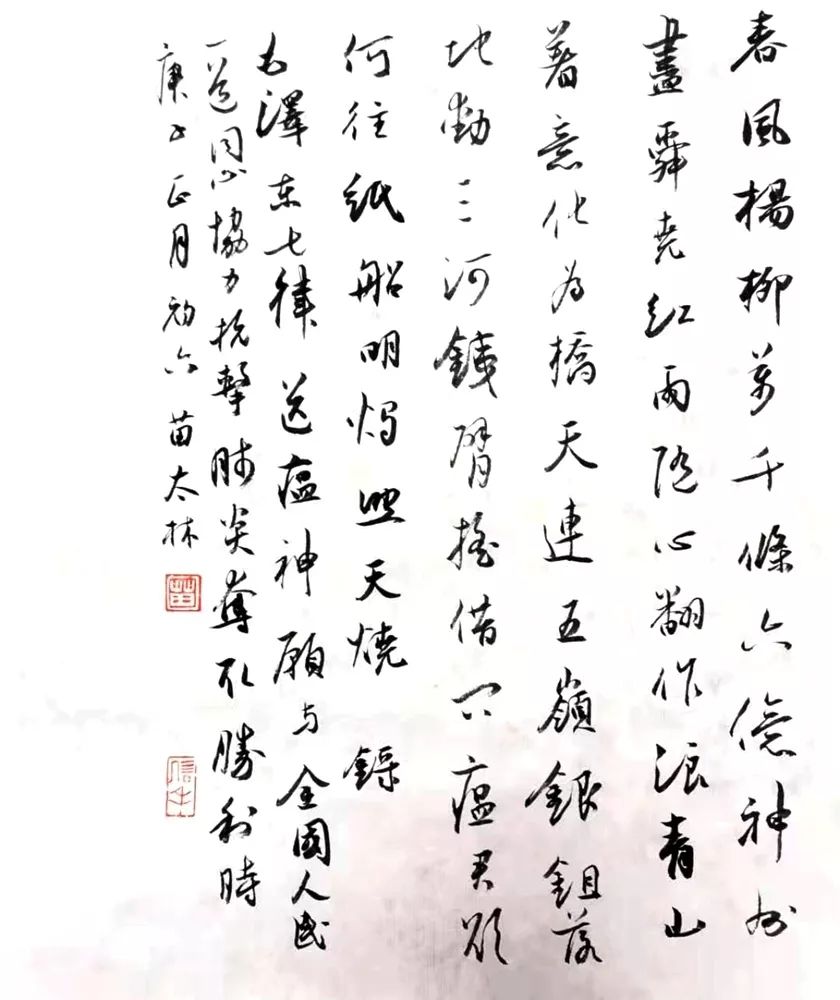 春風楊柳萬千條六億神州
盡舜堯紅雨隨心翻作浪青山
著意化為橋天連五嶺銀鉏落
地動三河鐵臂搖借問瘟君欲
何往紙船明燭照天燒 錄
毛澤東七律送瘟神願与全國人民
一道同心協力抗擊肺炎奪取勝利時
庚子正月初六苗太林
苗